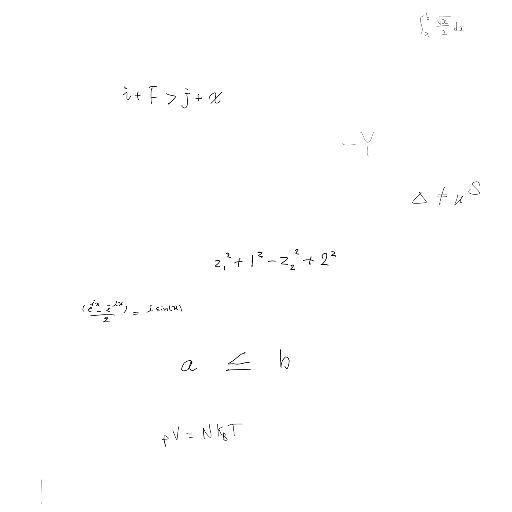 ∫_a^b √x/2 dx
i + F > j + x
- Y
Δ ≠ u^S
z_1^2 + 1^2 - z_2^2 + 2^2
(e^{ix} - e^{-ix})/2 = i sin(x)
a ≤ b
pV = N k_B T
|